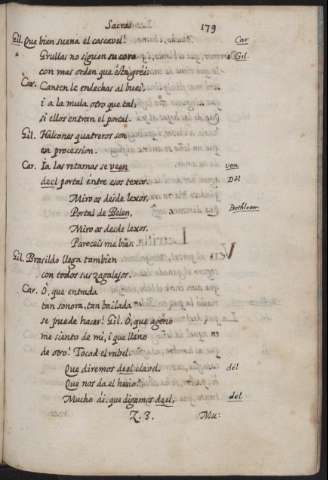 Sacras 179
Gil. Que bien suena el cascavel! Car
Grullas no siguen su coro Gil.
con mas orden que esta grei.
Car. Canten le endechas al buei,
i a la mula otro que tal,
si ellos entran el portal.
Gil. Halcones quatreros son
en procession.
Car. Ia las retamas se veen ven
del portal entre esos texos. Del
Miroos desde lexos,
Portal de Belen, Bethleem
Miroos desde lexos.
Pareceis me bien.
Gil. Brasildo llega tambien
con todos sus zagalejos.
Car. O, que entrada
tan sonora, tan bailada
se puede hazer! Gil. O, que ageno
me siento de mi, i que lleno
de otro! Tocad el rabel.
Que diremos del clavel. del
Que nos da el heno?
Mucho ai, que digamos del, del
Z. 3. Mu: